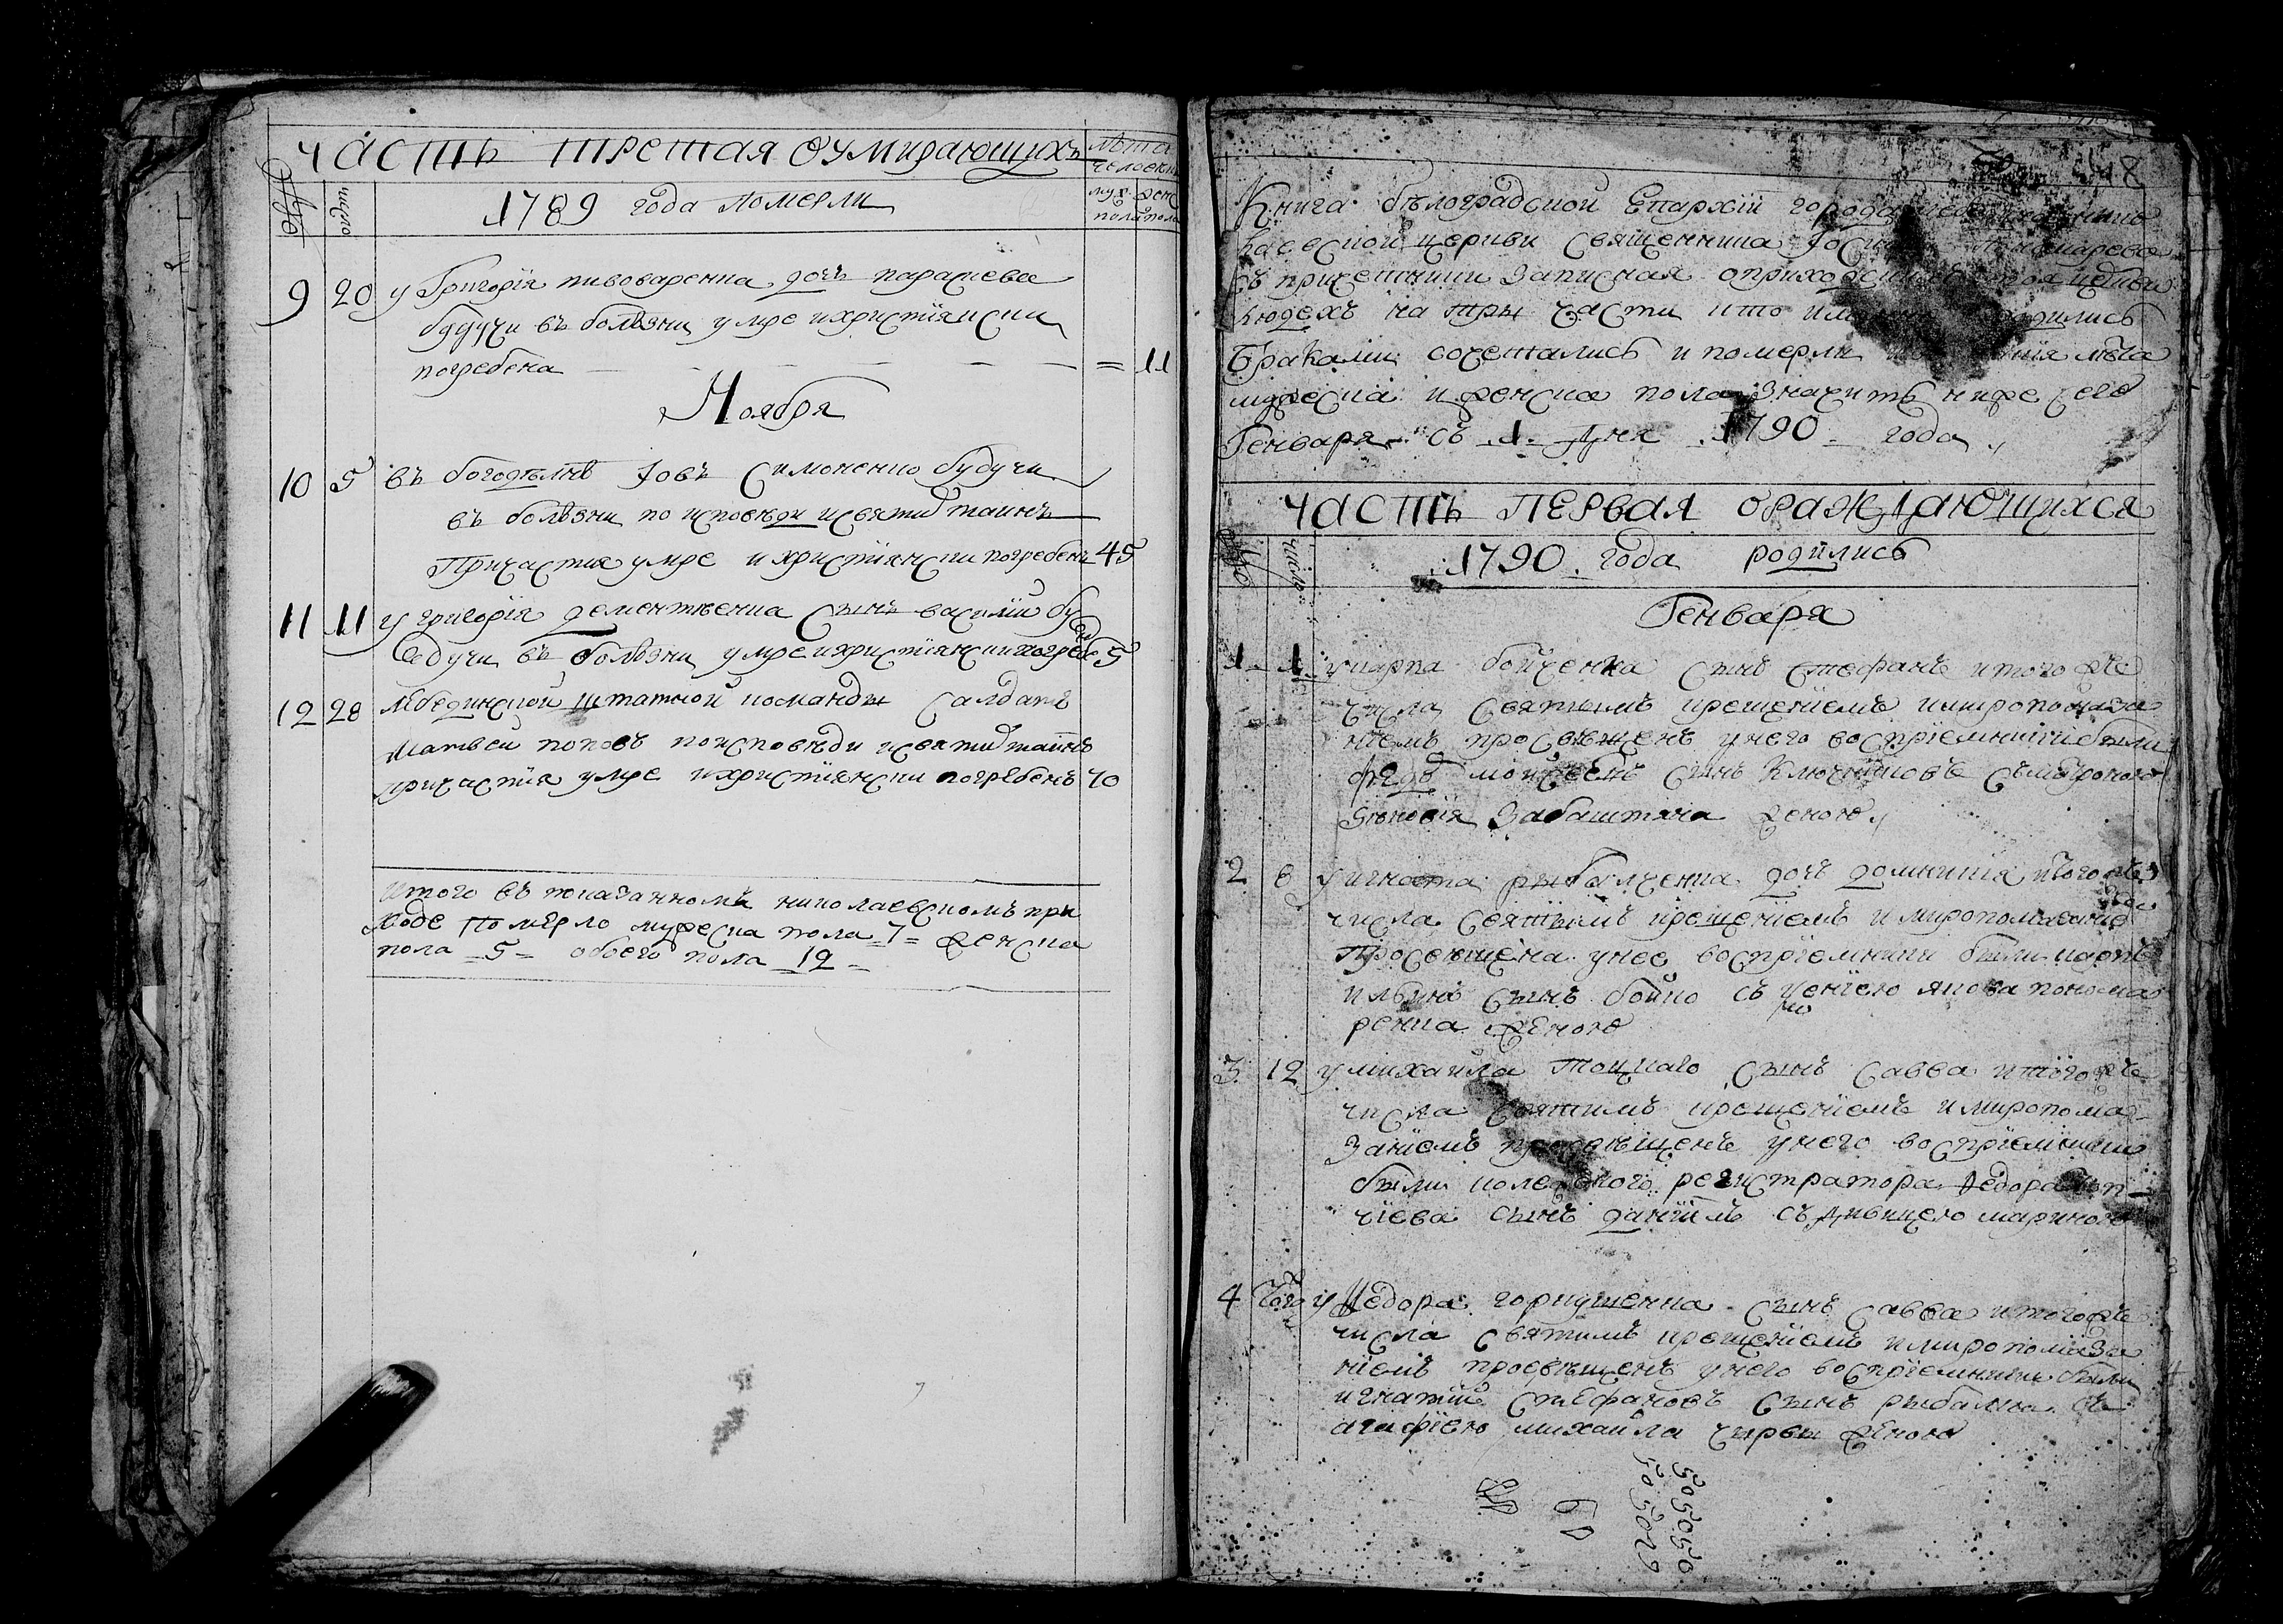 часть третая оумирающихъ
лѣта
человеки
число
1789 года померли
муж. жен
пола пола
9 20 у Григорїя пивоваренка дочь параскева
будучи въ болѣзни умре и христїянски
погребена = 11
Ноября
10 5 въ богодѣлнѣ Іовъ Симоненко будучи
въ болѣзни по исповѣди и святих таинъ
Причастия умре и христїянски погребенъ 45
11 11 у григорїя дементѣенка Сынъ василїй бу
будучи въ болѣзни умре и христїянски погребе 5
12 28 лебединской штатной команды Салдатъ
Матвеи поповъ по исповѣди и святих таинъ
причастїя умре и христїянски погребенъ 70
Итого въ показанномъ николаевскомъ при
ходе Померло мужеска пола =7= женска
пола =5= обоего пола =12=
Книга бѣлоградской Епархїи города
каевской церкви Священника Пономарева
съ причетники записная о приходскихъ тоя церкви
людехъ на три части кто родились
Бракамы сочетались и померли лѣта
мужеска и женска пола значитъ ниже сего
Генваря съ 1 Дня 1790 года
часть первая ораждающихся
число
1790 года родились
Генваря
1 1 у карпа бойченка Сынъ Стефанъ и того же
числа Святымъ крещенїемъ и миропомаза
нїемъ просвѣщенъ у него воспрїемники были
Сынъ Ключниковъ
Зѣновїя Забаштана женою
2 6 у игната рыбалченка дочь домникїя и того жъ
числа Святымъ крещенїемъ и миропомазание
Просвѣщена у нее воспрїемники были карпъ
илѣинъ Сынъ бойко съ якова понома
ренка женою
3 12 у михайла Тоцкаго Сынъ Савва и того же
числа Святимъ крещенїемъ и миропома
Занїемъ просвѣщенъ у него воспрїемники
были колежского регистратора Федора
чїева сынъ данїилъ съ дивицею мариною
4 того у Федора горкушенка Сынъ Савва и того же
числа Святимъ крещенїемъ и миропомаза
нїемъ просвѣщенъ у него воспрїемники были
игнатїй Стефановъ Сынъ рыбалка съ
агафїею михайла чирвы женою